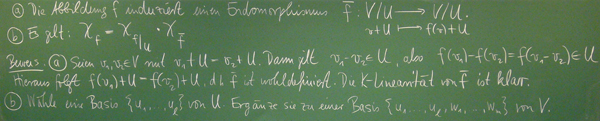 ⓐ Die Abbildung f induziert einen Endomorphismus f̄ : V/U ⟶ V/U.
v+U ⟼ f(v)+U
ⓑ Es gilt: χ_f = χ_{f|U} · χ_f̄
Beweis. ⓐ Seien v₁,v₂∈V mit v₁+U = v₂+U. Dann gilt v₁-v₂∈U, also f(v₁)-f(v₂)=f(v₁-v₂)∈U
Hieraus folgt f(v₁)+U = f(v₂)+U, d.h. f̄ ist wohldefiniert. Die K-Linearität von f̄ ist klar.
ⓑ Wähle eine Basis {u₁,...,u_ℓ} von U. Ergänze sie zu einer Basis {u₁,...,u_ℓ,w₁,...,w_m} von V.